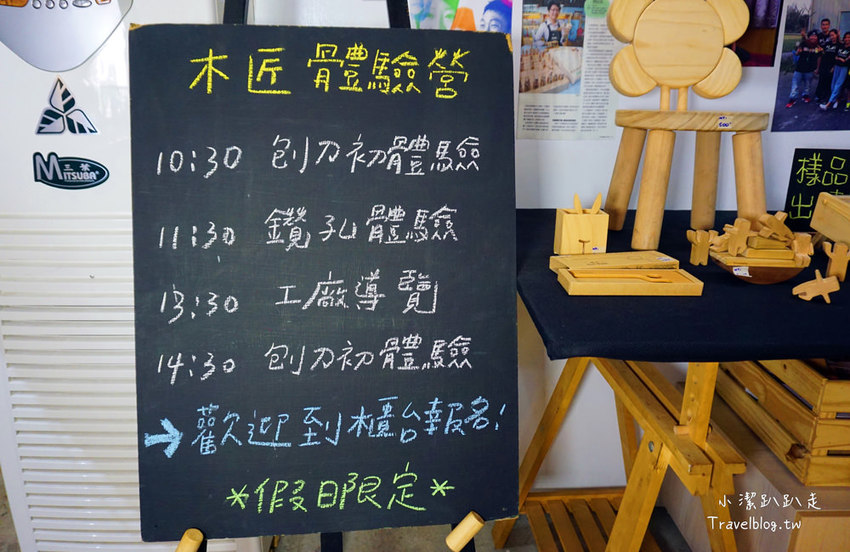 木匠 體驗營
10:30 刨刀初體驗
11:30 鑽孔體驗
13:30 工廠導覽
14:30 刨刀初體驗
→ 歡迎到櫃台報名!
*假日限定*
三葉
MITSUBA
樣品
出
小潔趴趴走
Travelblog.tw